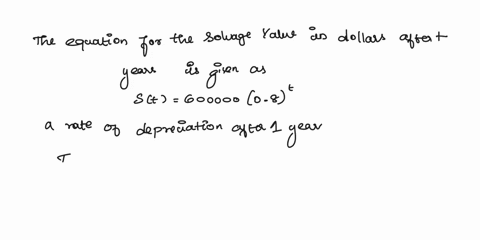 The equation for the Solvage Value in dollars after t
years is given as
S(t) = 600000 (0.8)^t
a rate of depreciation after 1 year
T